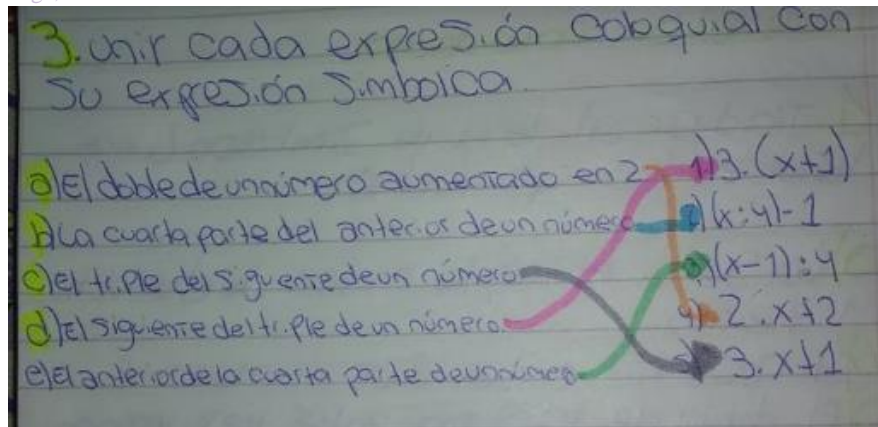 3. Unir cada expresión coloquial con
su expresión simbolica.
a) El doble de un número aumentado en 2 1) 3. (x+1)
b) La cuarta parte del anterior de un número 2) (x:4)-1
c) El triple del siguente de un número 3) (x-1):4
d) El siguiente del triple de un número. 4) 2.x+2
e) El anterior de la cuarta parte de un número 5) 3.x+1